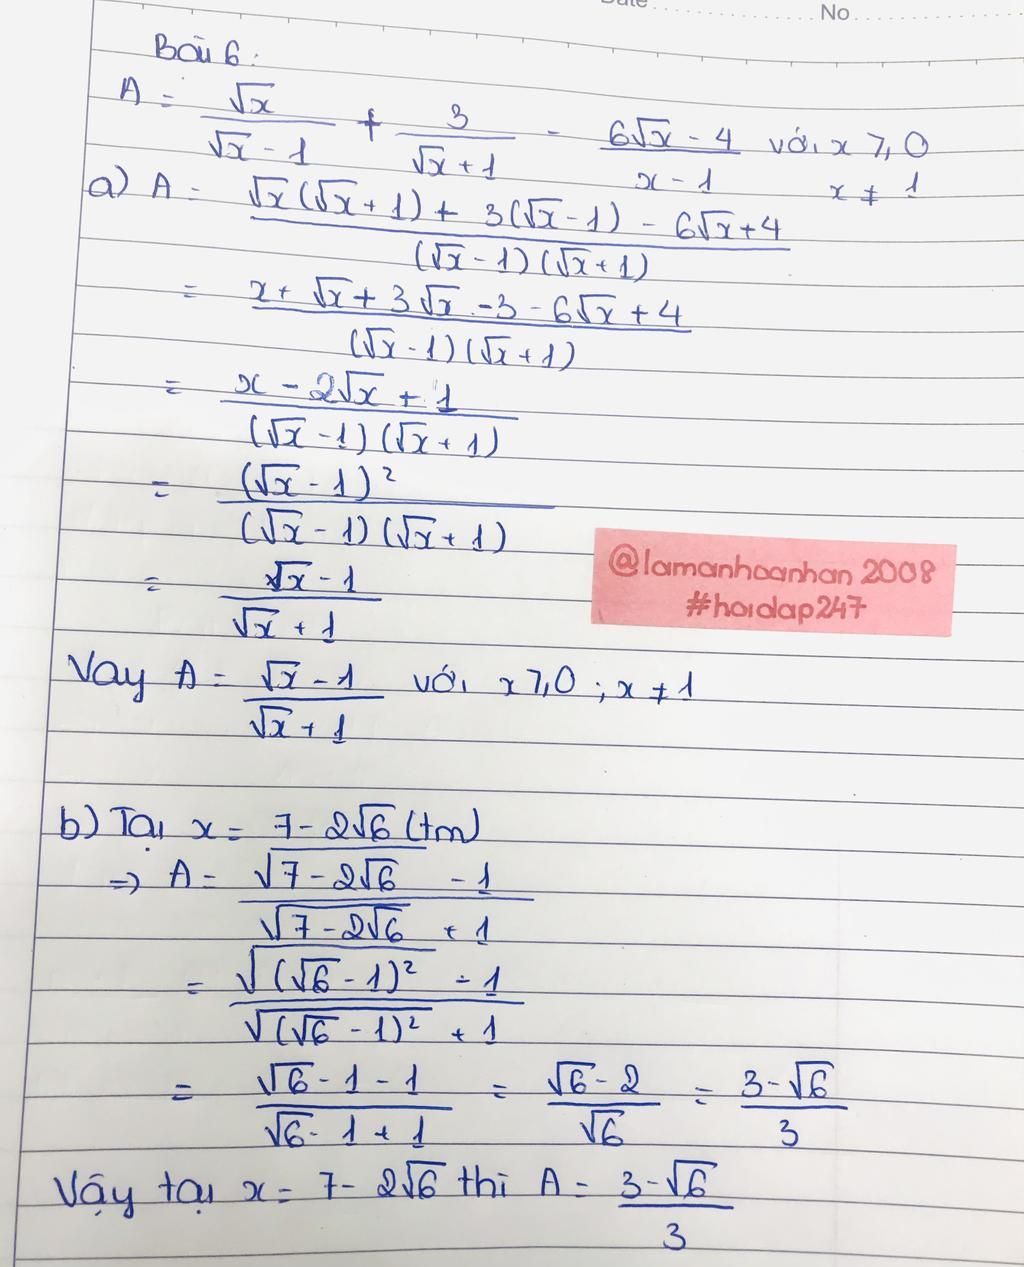 Date No
Bài 6:
A = √x/(√x - 1) + 3/(√x + 1) - (6√x - 4)/(x - 1) với x ⩾ 0 x ≠ 1
a) A = (√x(√x + 1) + 3(√x - 1) - 6√x + 4)/((√x - 1)(√x + 1))
= (x + √x + 3√x - 3 - 6√x + 4)/((√x - 1)(√x + 1))
= (x - 2√x + 1)/((√x - 1)(√x + 1))
= (√x - 1)²/((√x - 1)(√x + 1))
= (√x - 1)/(√x + 1)
@lamanhoanhan 2008
#hoidap247
Vay A = (√x - 1)/(√x + 1) với x ⩾ 0 ; x ≠ 1
b) Tại x = 7 - 2√6 (tm)
=> A = (√(7 - 2√6) - 1)/(√(7 - 2√6) + 1)
= (√((√6 - 1)²) - 1)/(√((√6 - 1)²) + 1)
= (√6 - 1 - 1)/(√6 - 1 + 1) = (√6 - 2)/√6 = (3 - √6)/3
Vậy tại x = 7 - 2√6 thì A = (3 - √6)/3